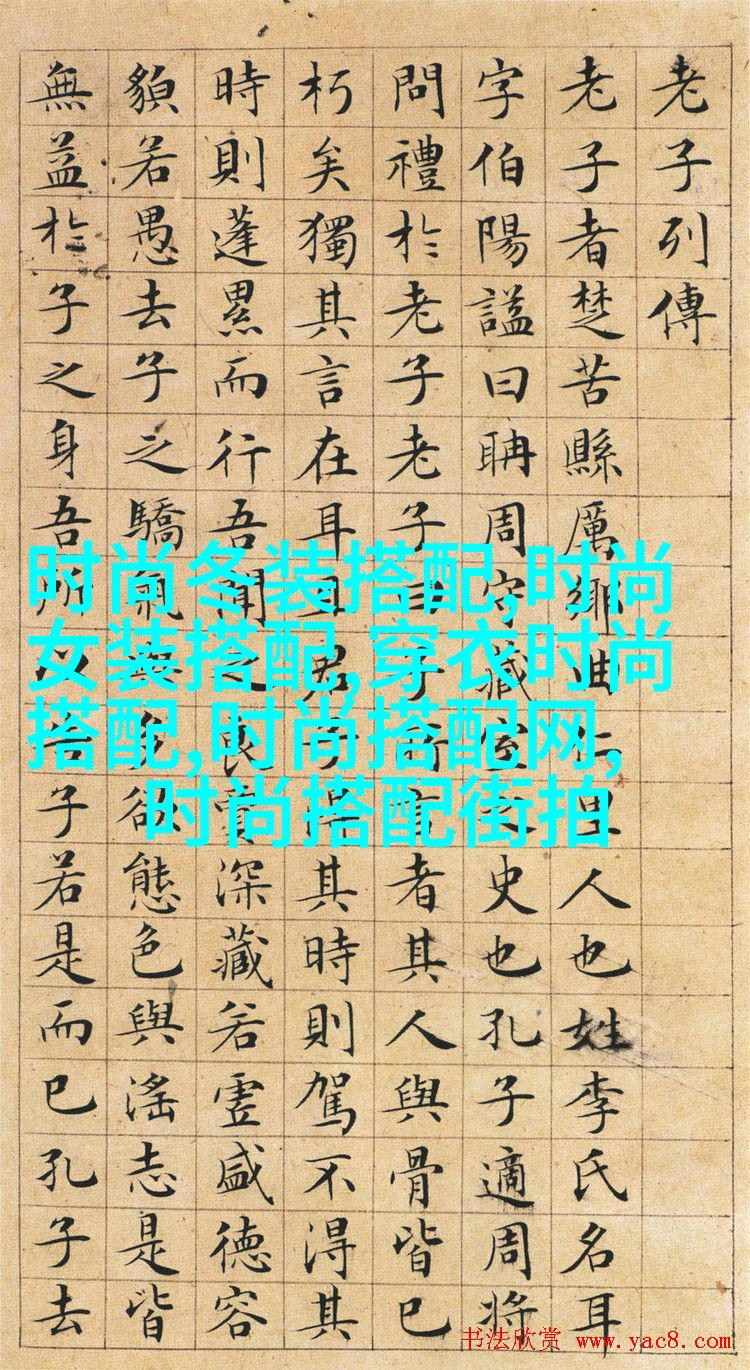 老子列傳
老子者楚苦縣厲鄉曲仁里人也姓李氏名耳
字伯陽謚曰聃周守藏室之史也孔子適周將
問禮於老子老子曰子所言者其人與骨皆已
朽矣獨其言在耳且君子得其時則駕不得其
時則蓬累而行吾聞之良賈深藏若虛盛德容
貌若愚去子之驕氣與多欲態色與滛志是皆
無益於子之身吾所以告子若是而已孔子去
时尚冬装搭配,时尚
女装搭配,穿衣时尚
搭配,时尚搭配网,
时尚搭配街拍
书法欣赏 www.yac8.com